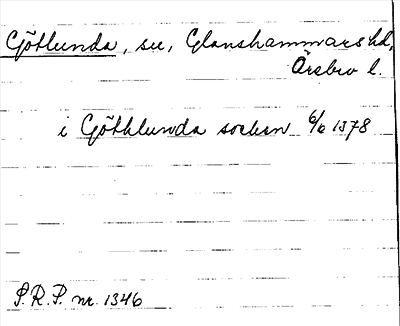 Götlunda, sn, Glanshammars hd,
Örebro l.
i Göthlunda sochn 6/6 1378
S.R.P. nr 1346